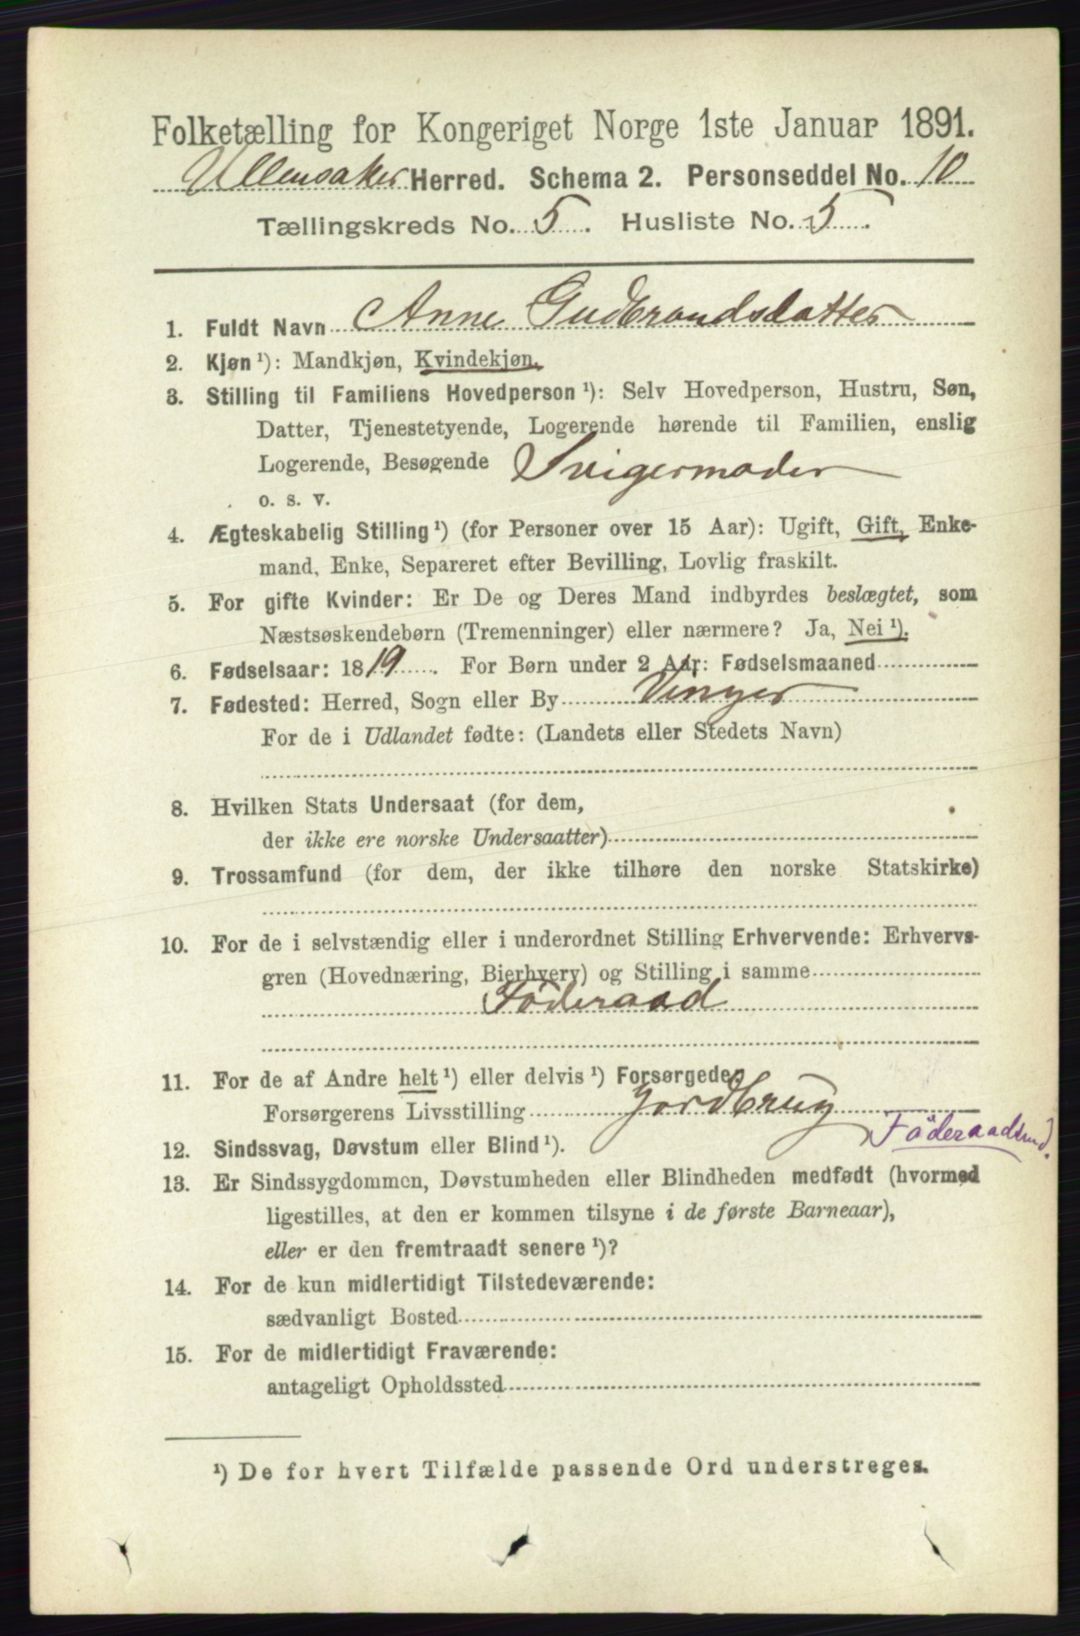 Folketælling for Kongeriget Norge 1ste Januar 1891.
Ullensaker Herred. Schema 2. Personseddel No. 10
Tællingskreds No. 5. Husliste No. 5.
1. Fuldt Navn Anne Gudbrandsdatter
2. Kjøn ¹): Mandkjøn, Kvindekjøn.
3. Stilling til Familiens Hovedperson ¹): Selv Hovedperson, Hustru, Søn,
Datter, Tjenestetyende, Logerende hørende til Familien, enslig
Logerende, Besøgende Svigermoder
o. s. v.
4. Ægteskabelig Stilling ¹) (for Personer over 15 Aar): Ugift, Gift, Enke-
mand, Enke, Separeret efter Bevilling, Lovlig fraskilt.
5. For gifte Kvinder: Er De og Deres Mand indbyrdes beslægtet, som
Næstsøskendebørn (Tremenninger) eller nærmere? Ja, Nei ¹).
6. Fødselsaar: 1819. For Børn under 2 Aar: Fødselsmaaned
7. Fødested: Herred, Sogn eller By Vinger
For de i Udlandet fødte: (Landets eller Stedets Navn)
8. Hvilken Stats Undersaat (for dem,
der ikke ere norske Undersaatter)
9. Trossamfund (for dem, der ikke tilhøre den norske Statskirke)
10. For de i selvstændig eller i underordnet Stilling Erhvervende: Erhvervs-
gren (Hovednæring, Bierhverv) og Stilling i samme
Föderaad
11. For de af Andre helt ¹) eller delvis ¹) Forsørgede:
Forsørgerens Livsstilling Jordbrug
Föderaads
12. Sindssvag, Døvstum eller Blind ¹).
13. Er Sindssygdommen, Døvstumheden eller Blindheden medfødt (hvormed
ligestilles, at den er kommen tilsyne i de første Barneaar),
eller er den fremtraadt senere ¹)?
14. For de kun midlertidigt Tilstedeværende:
sædvanligt Bosted
15. For de midlertidigt Fraværende:
antageligt Opholdssted
¹) De for hvert Tilfælde passende Ord understreges.